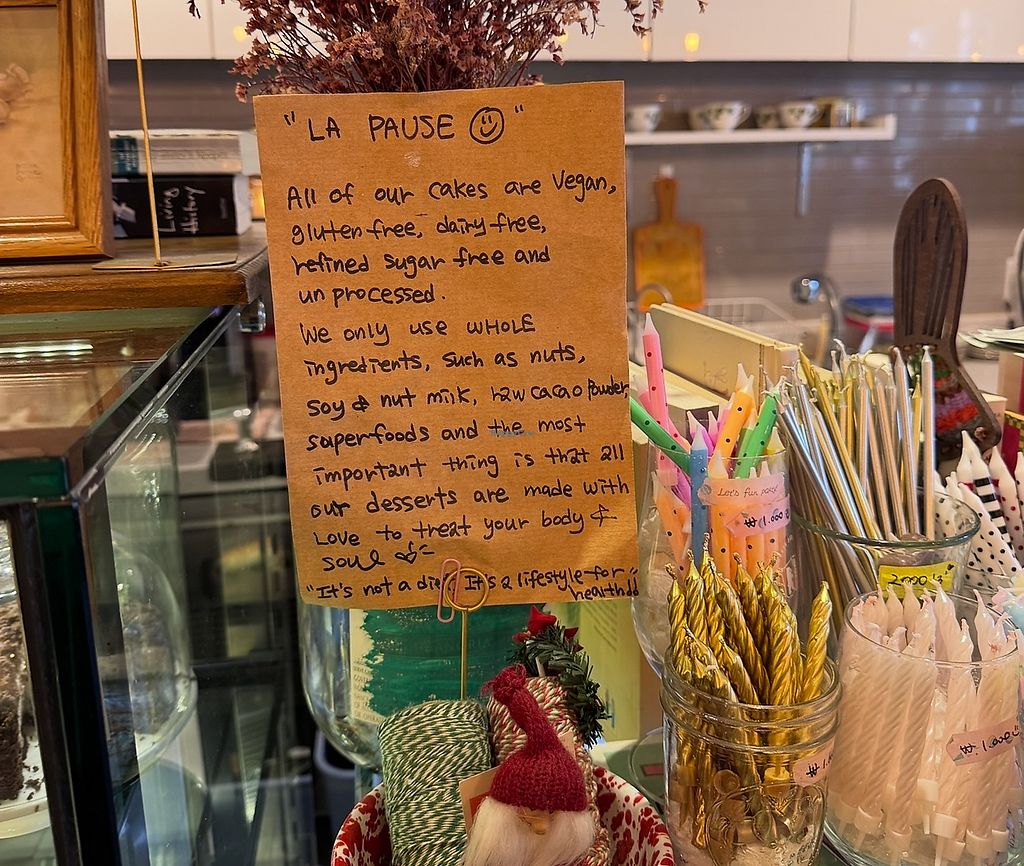 "LA PAUSE ☺"
All of our cakes are Vegan,
gluten free, dairy free,
refined sugar free and
un processed.
We only use WHOLE
ingredients, such as nuts,
soy & nut milk, raw cacao powder,
superfoods and the most
important thing is that all
our desserts are made with
Love to treat your body &
soul
"It's not a die It's a lifestyle for
health
Living
History
Let's fun party
₩1.000
2000
₩1.
₩1.000